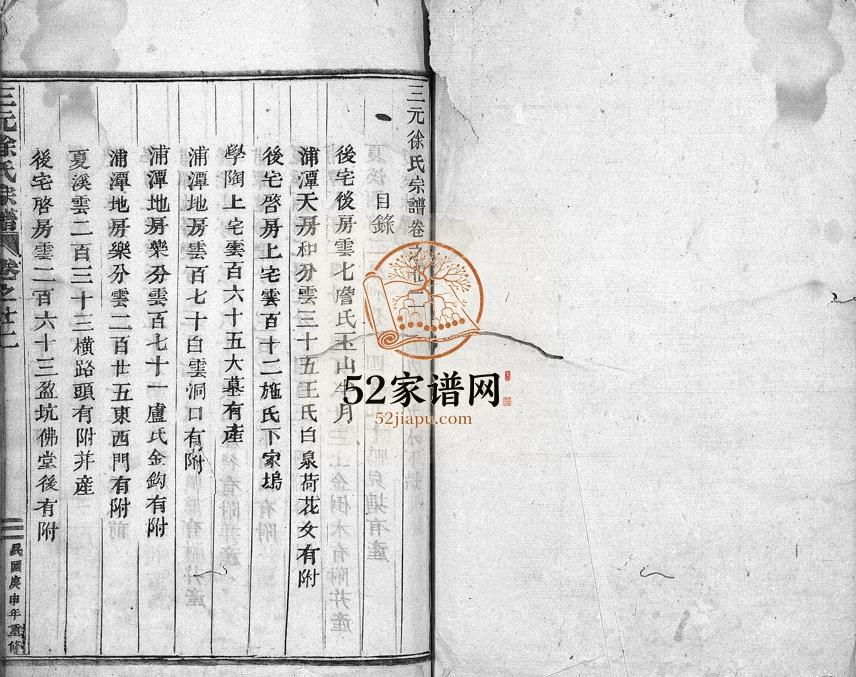 三元徐氏宗譜卷之廿一
目錄
後宅後房雲七詹氏玉山半月
浦潭天房和分雲三十五王氏白泉荷花攵有附
後宅啓房上宅雲百十二施氏下家塢
學陶上宅雲百六十五大墓有產
浦潭地房雲百七十白雲洞口有附
浦潭地房樂分雲百七十一盧氏金鈎有附
浦潭地房樂分雲二百廿五東西門有附
夏溪雲二百三十三橫路頭有附并產
後宅啓房雲二百六十三盈坑佛堂後有附
三元徐氏宗譜
卷之廿一
民國庚申年重修
52家谱网
52jiapu.com